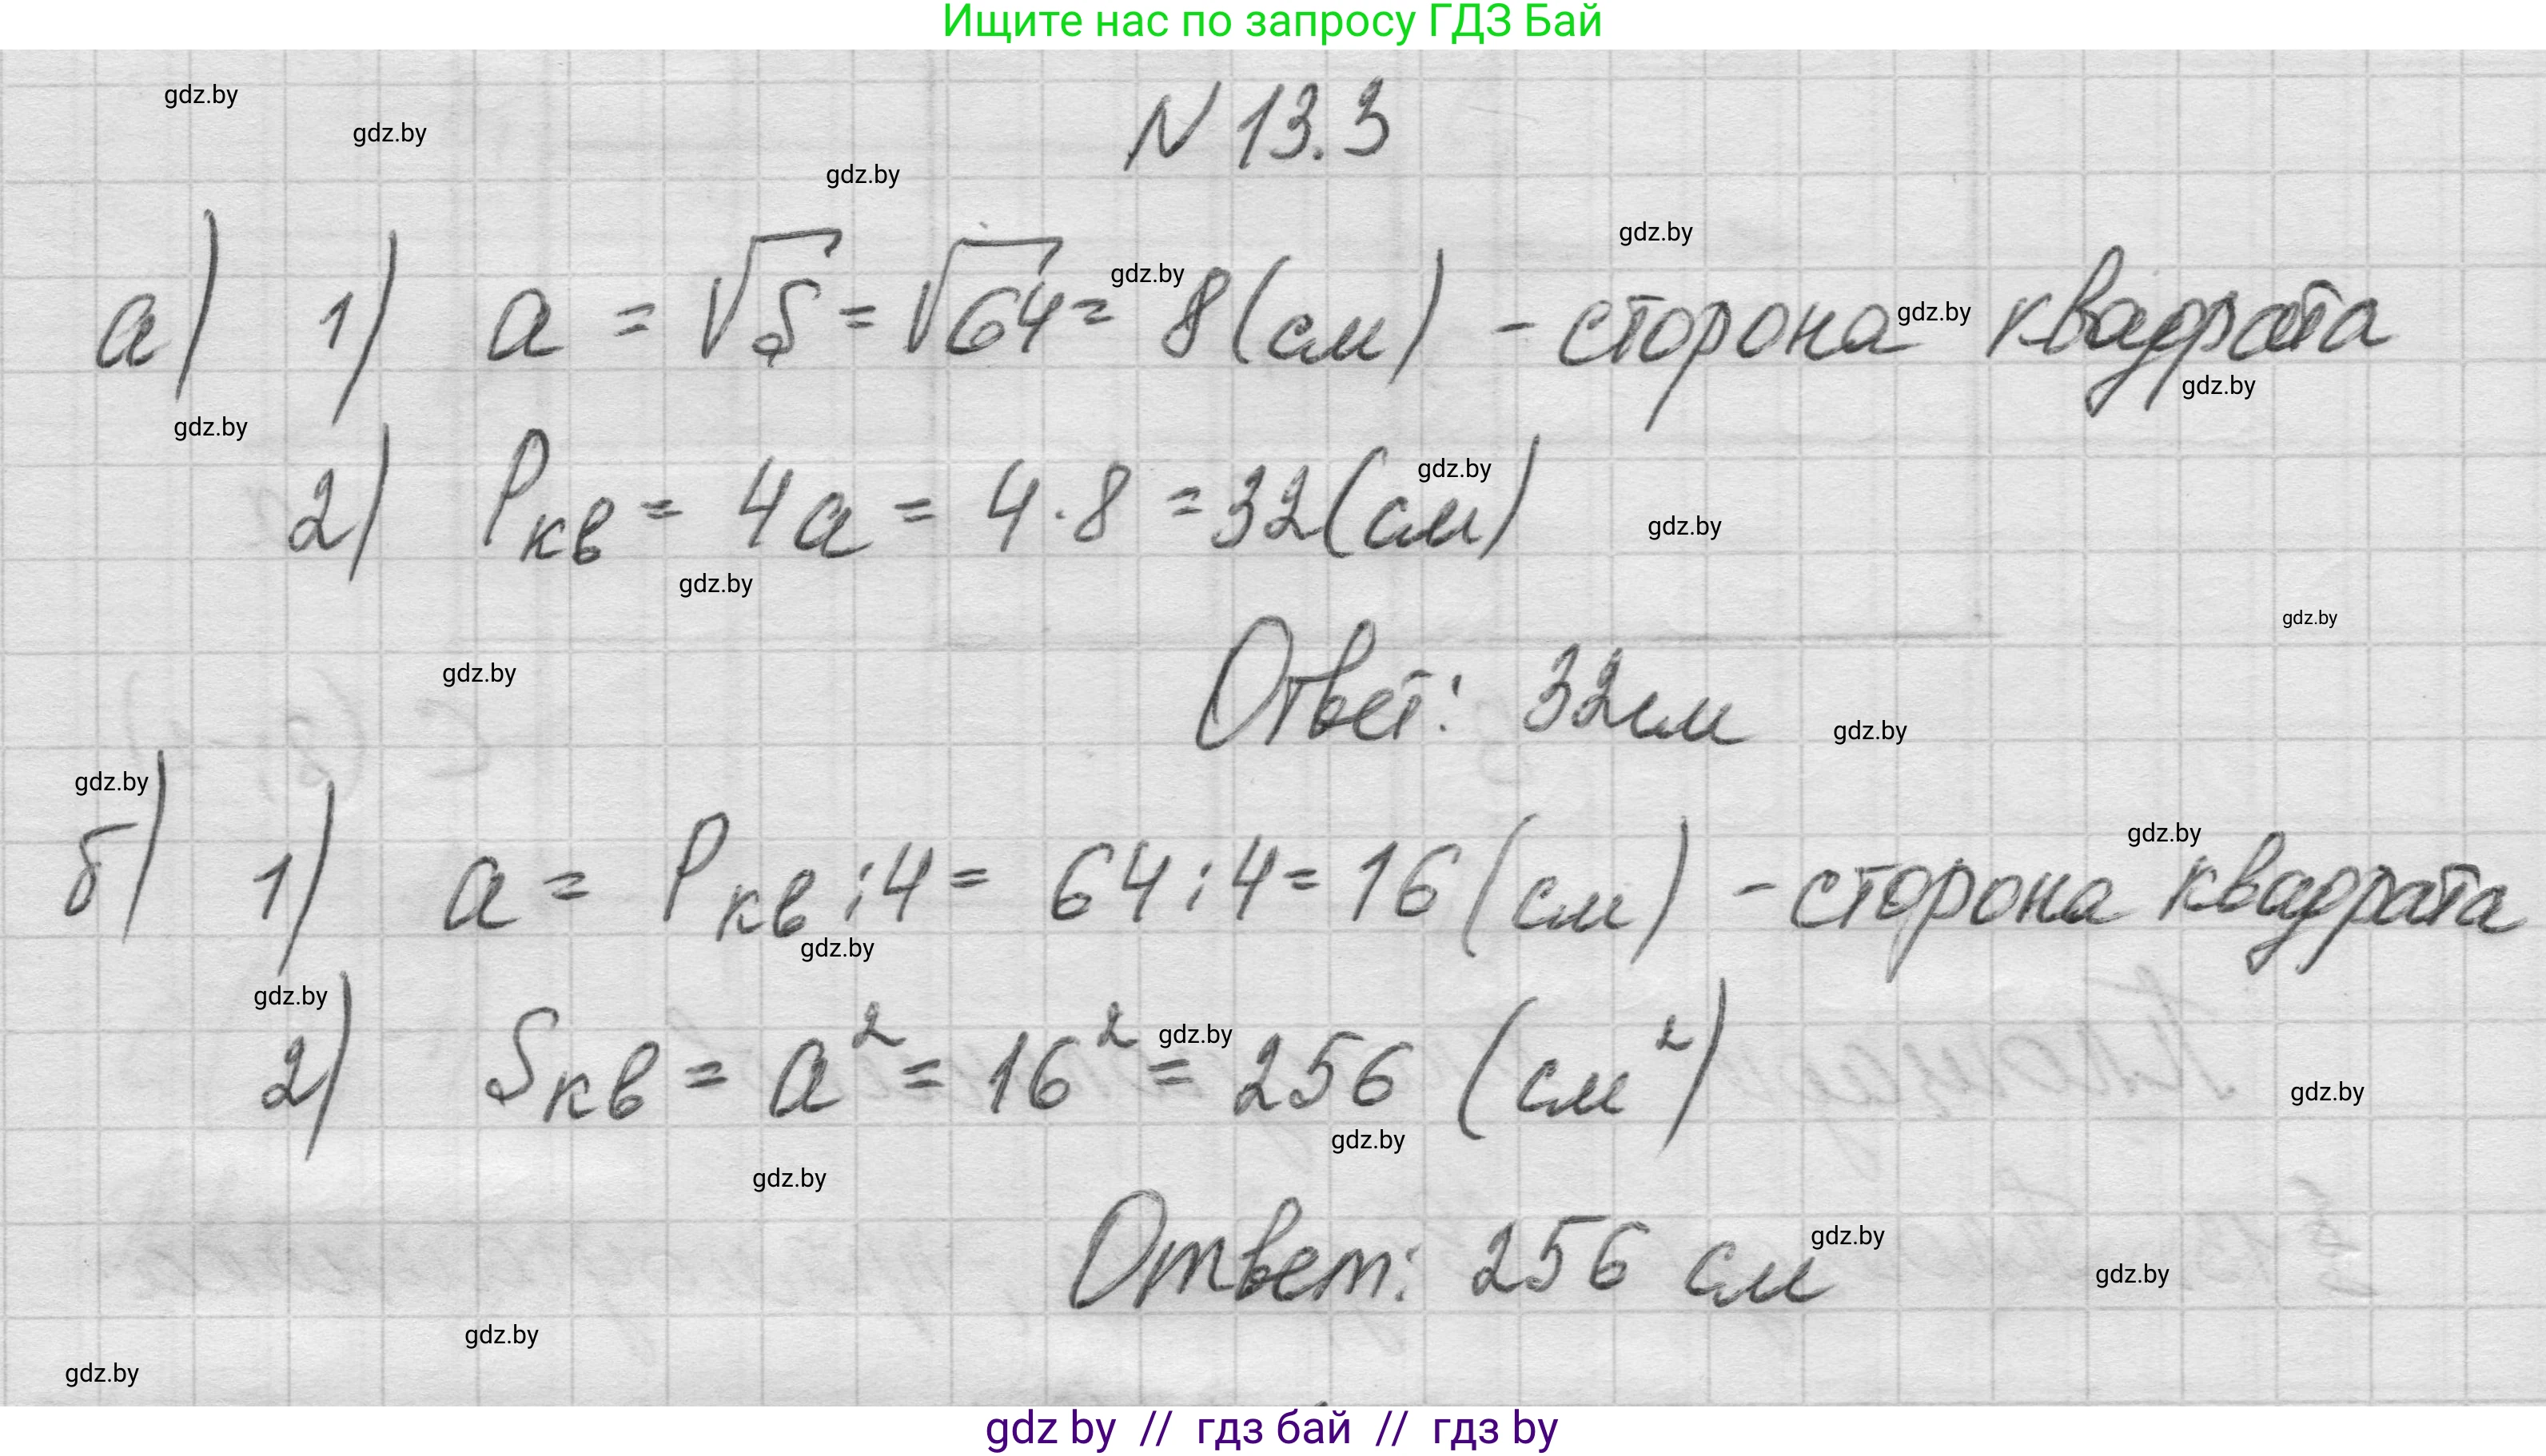 Ищите нас по запросу ГДЗ Бай
gdz.by
gdz.by
N 13.3
gdz.by
gdz.by
а) 1) a = √S = √64 = 8 (см) - сторона квадрата
gdz.by
gdz.by
gdz.by
gdz.by
2) Pкв = 4a = 4 · 8 = 32 (см)
gdz.by
gdz.by
gdz.by
gdz.by
gdz.by
Ответ: 32 см
gdz.by
gdz.by
б) 1) a = Pкв : 4 = 64 : 4 = 16 (см) - сторона квадрата
gdz.by
gdz.by
gdz.by
2) Sкв = a² = 16² = 256 (см²)
gdz.by
gdz.by
gdz.by
gdz.by
Ответ: 256 см
gdz.by
gdz.by
gdz.by
gdz.by
gdz by // гдз бай // гдз by